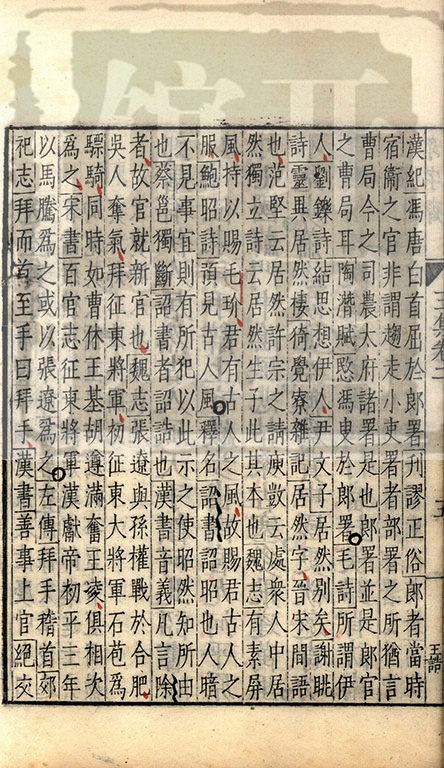 漢紀馮唐白首屈於郎署刊謬正俗郎者當時
宿衞之官非謂趨走小吏署者部署之所猶言
曹局今之司農太府諸署是也郎署並是郎官
之曹局耳陶潛賦愍馮叟於郎署毛詩所謂伊
人劉鑠詩結思想伊人尹文子居然別矣謝眺
詩靈異居然棲倚覺寮雜記居然字晉宋間語
也范堅云居然許宗之請庾數云處衆人中居
然獨立詩云居然生子此其本也魏志有素屏
風持以賜毛玠君有古人之風故賜君古人之
服鮑昭詩預見古人風釋名詔書詔昭也人暗
不見事宜則有所犯以此示之使昭然知所由
也蔡邕獨斷詔書者詔誥也漢書音義凡言除
者故官就新官也魏志張遼與孫權戰於合肥
吳人奪氣拜征東將軍初征東大將軍石苞爲
驃騎同時如曹休王基胡遵滿奮王凌俱相次
爲之宋書百官志征東將軍漢獻帝初平三年
以馬騰爲之或以張遼爲之左傳拜手稽首郊
祀志拜而首至手曰拜手漢書善事上官絕交
五
王誥